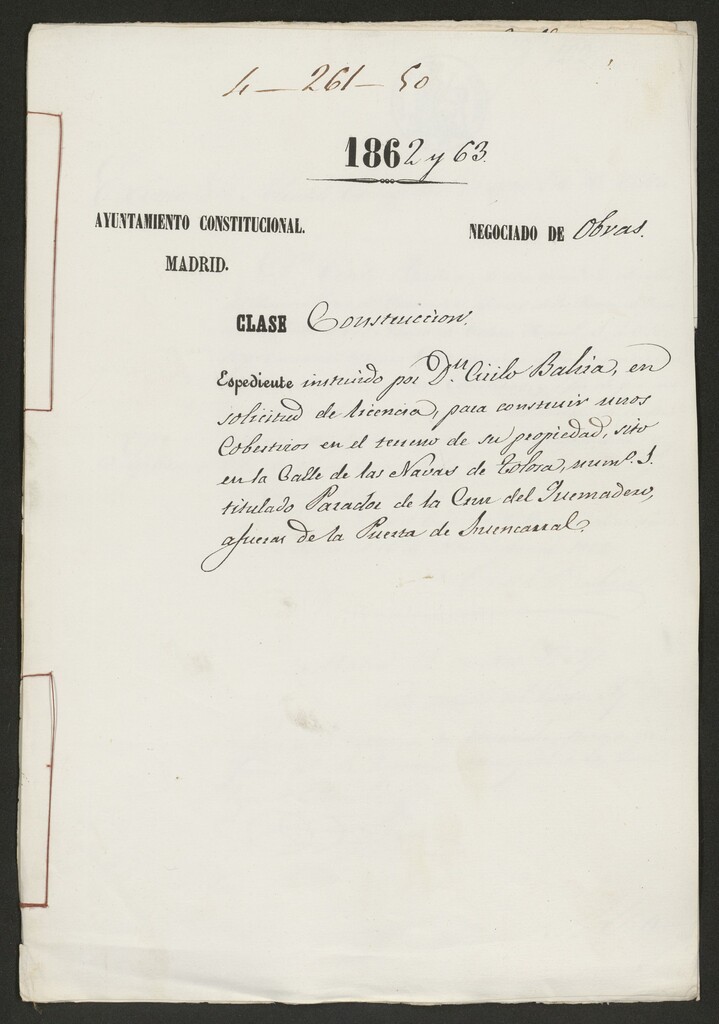 4 — 261 — 50
1862 y 63.
AYUNTAMIENTO CONSTITUCIONAL.
MADRID.
NEGOCIADO DE Obras.
CLASE Construccion.
Espediente instruido por Dn. Cirilo Bahia, en
solicitud de licencia, para construir unos
Cobertizos en el terreno de su propiedad, sito
en la Calle de las Navas de Tolosa, numo. 1.
titulado Parador de la Cruz del Quemadero,
afueras de la Puerta de Fuencarral.